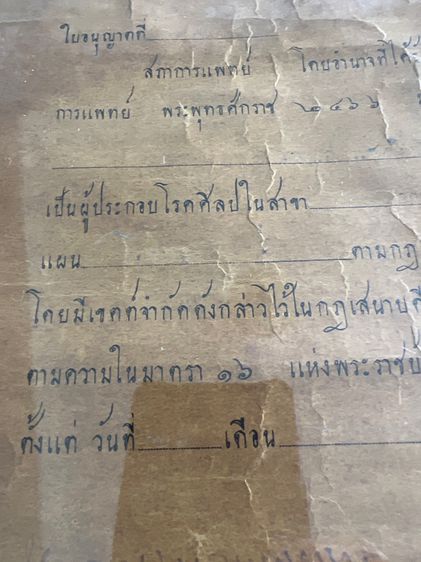 ใบอนุญาตที่
สภาการแพทย์ โดยอำนาจที่ได้
การแพทย์ พระพุทธศักราช ๒๔๖๖
เป็นผู้ประกอบโรคศิลปในสาขา
แผน ตามกฎ
โดยมีเขตต์จำกัดดังกล่าวไว้ในกฎเสนาบดี
ตามความในมาตรา ๑๖ แห่งพระราชบั
ตั้งแต่ วันที่ เดือน